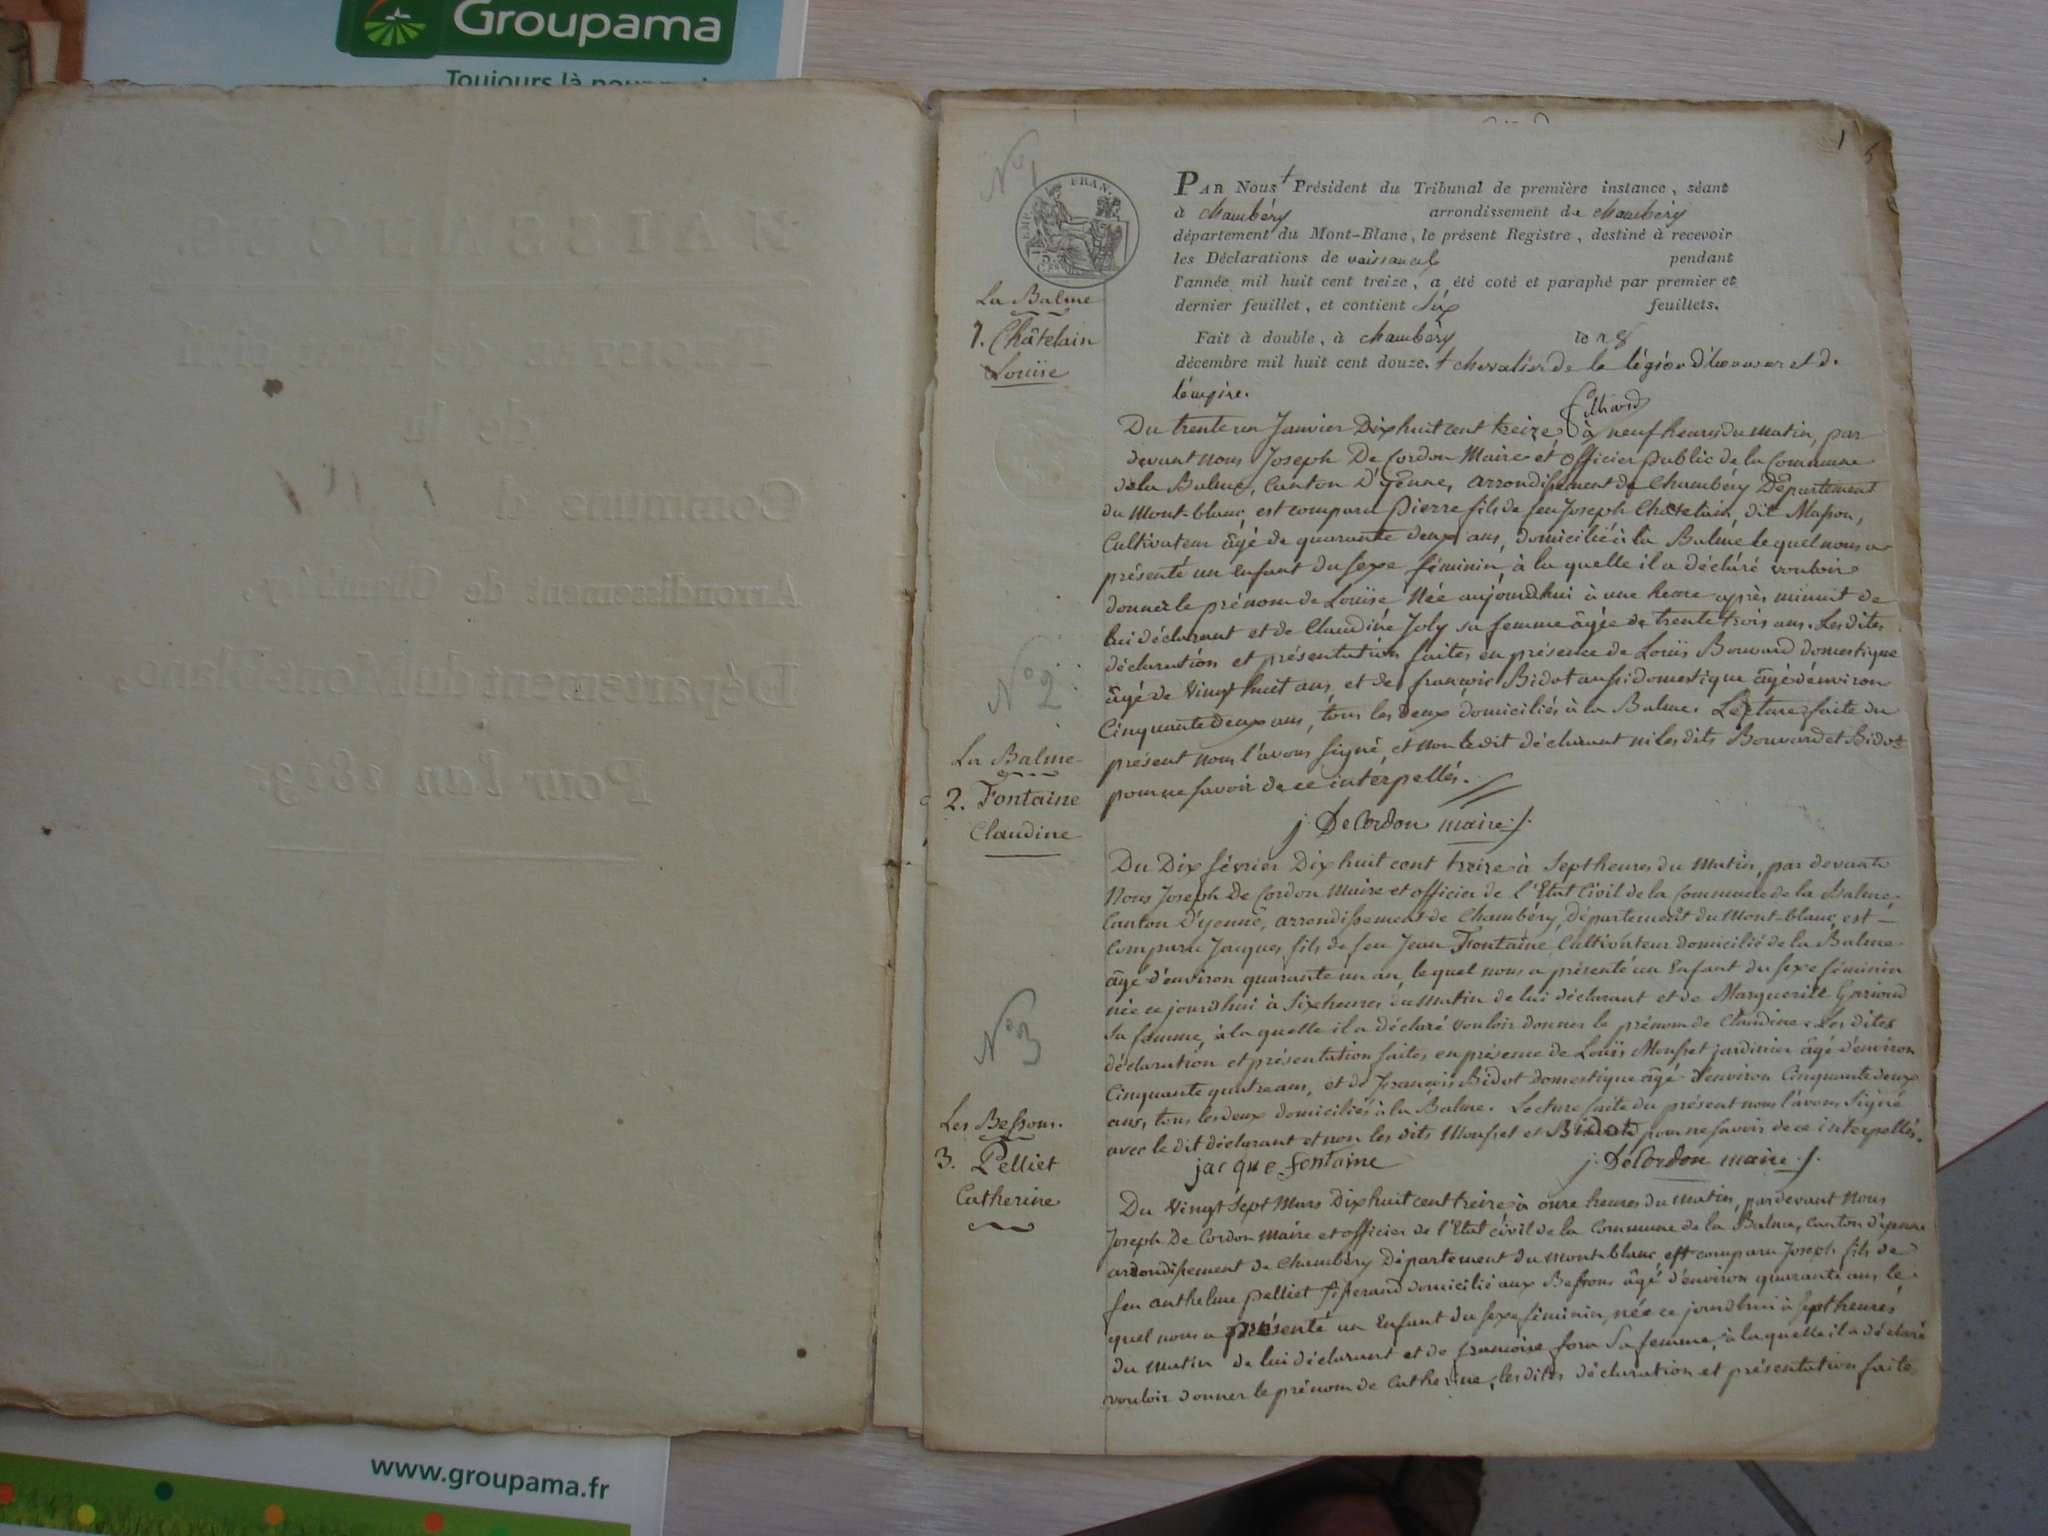 Groupama
Toujours là pour
NAISSANCE.
de la
Commune d
Arrondissement de Chambéry,
Département du Mont-Blanc,
Pour l'an 1813.
www.groupama.fr
1
N° 1
EMP FRAN.
75 C.
PAR Nous + Président du Tribunal de première instance, séant
à chambéry arrondissement de chambéry
département du Mont-Blanc, le présent Registre, destiné à recevoir
les Déclarations de naissances pendant
l'année mil huit cent treize, a été coté et paraphé par premier et
dernier feuillet, et contient Six feuillets.
Fait à double, à chambéry le 28
décembre mil huit cent douze. + chevalier de la légion d'honneur et de
l'empire.
filliard
La Balme
1. Châtelain
Louise
Du trente un Janvier Dix huit cent treize à neuf heures du matin, par
devant nous Joseph De Cordon Maire et officier public de la Commune
de la Balme, Canton D'yenne, arrondissement de Chambéry Département
du Mont-blanc, est comparu Pierre fils de feu Joseph Châtelain, dit Masson,
Cultivateur âgé de quarante deux ans, domicilié à la Balme, le quel nous a
présenté un enfant du sexe féminin, à la quelle il a déclaré vouloir
donner le prénom de Louise Née aujourdhui à une heure après minuit de
lui déclarant et de Claudine Joly sa femme âgée de trente trois ans. Les dites
déclaration et présentation faites en présence de Louis Bouvard domestique
âgé de Vingt huit ans, et de françois Bidot aussi domestique âgé d'environ
Cinquante deux ans, tous les deux domiciliés à la Balme. Lecture faite du
présent nous l'avons signé, et non le dit déclarant ni les dits Bouvard et Bidot
pour ne savoir de ce interpellés.
j. De Cordon maire
N° 2
La Balme
2. Fontaine
Claudine
Du Dix février Dix huit cent treize à Sept heures du matin, par devant
Nous Joseph De Cordon maire et officier de l'Etat Civil de la Commune de la Balme,
Canton D'yenne, arrondissement de Chambéry, département du Mont-blanc, est
Comparu Jacques fils de feu Jean Fontaine Cultivateur domicilié de la Balme
âgé d'environ quarante un an, le quel nous a présenté un Enfant du sexe féminin
née ce jourdhui à Six heures du matin de lui déclarant et de Marguerite
Sa femme, à la quelle il a déclaré vouloir donner le prénom de Claudine. Les dites
déclaration et présentation faites en présence de Louis Monfret jardinier âgé d'environ
Cinquante quatre ans, et de françois Bidot domestique âgé d'environ Cinquante deux
ans, tous les deux domiciliés à la Balme. Lecture faite du présent nous l'avons Signé
avec le dit déclarant et non les dits Monfret et Bidot pour ne savoir de ce interpellés.
jacque fontaine j. De Cordon maire
N° 3
Les Bessons.
3. Pelliet
Catherine
Du Vingt Sept Mars Dix huit cent treize à onze heures du matin, pardevant nous
Joseph De Cordon maire et officier de l'Etat civil de la Commune de la Balme, Canton d'yenne
arrondissement de Chambéry Département du mont-blanc, est comparu Joseph fils de
feu anthelme pelliet domicilié aux Bessons âgé d'environ quarante ans le
quel nous a présenté un Enfant du sexe féminin, née ce jourdhui à sept heures
du matin de lui déclarant et de francoise sa femme, à la quelle il a déclaré
vouloir donner le prénom de Catherine, les dites déclaration et présentation faite